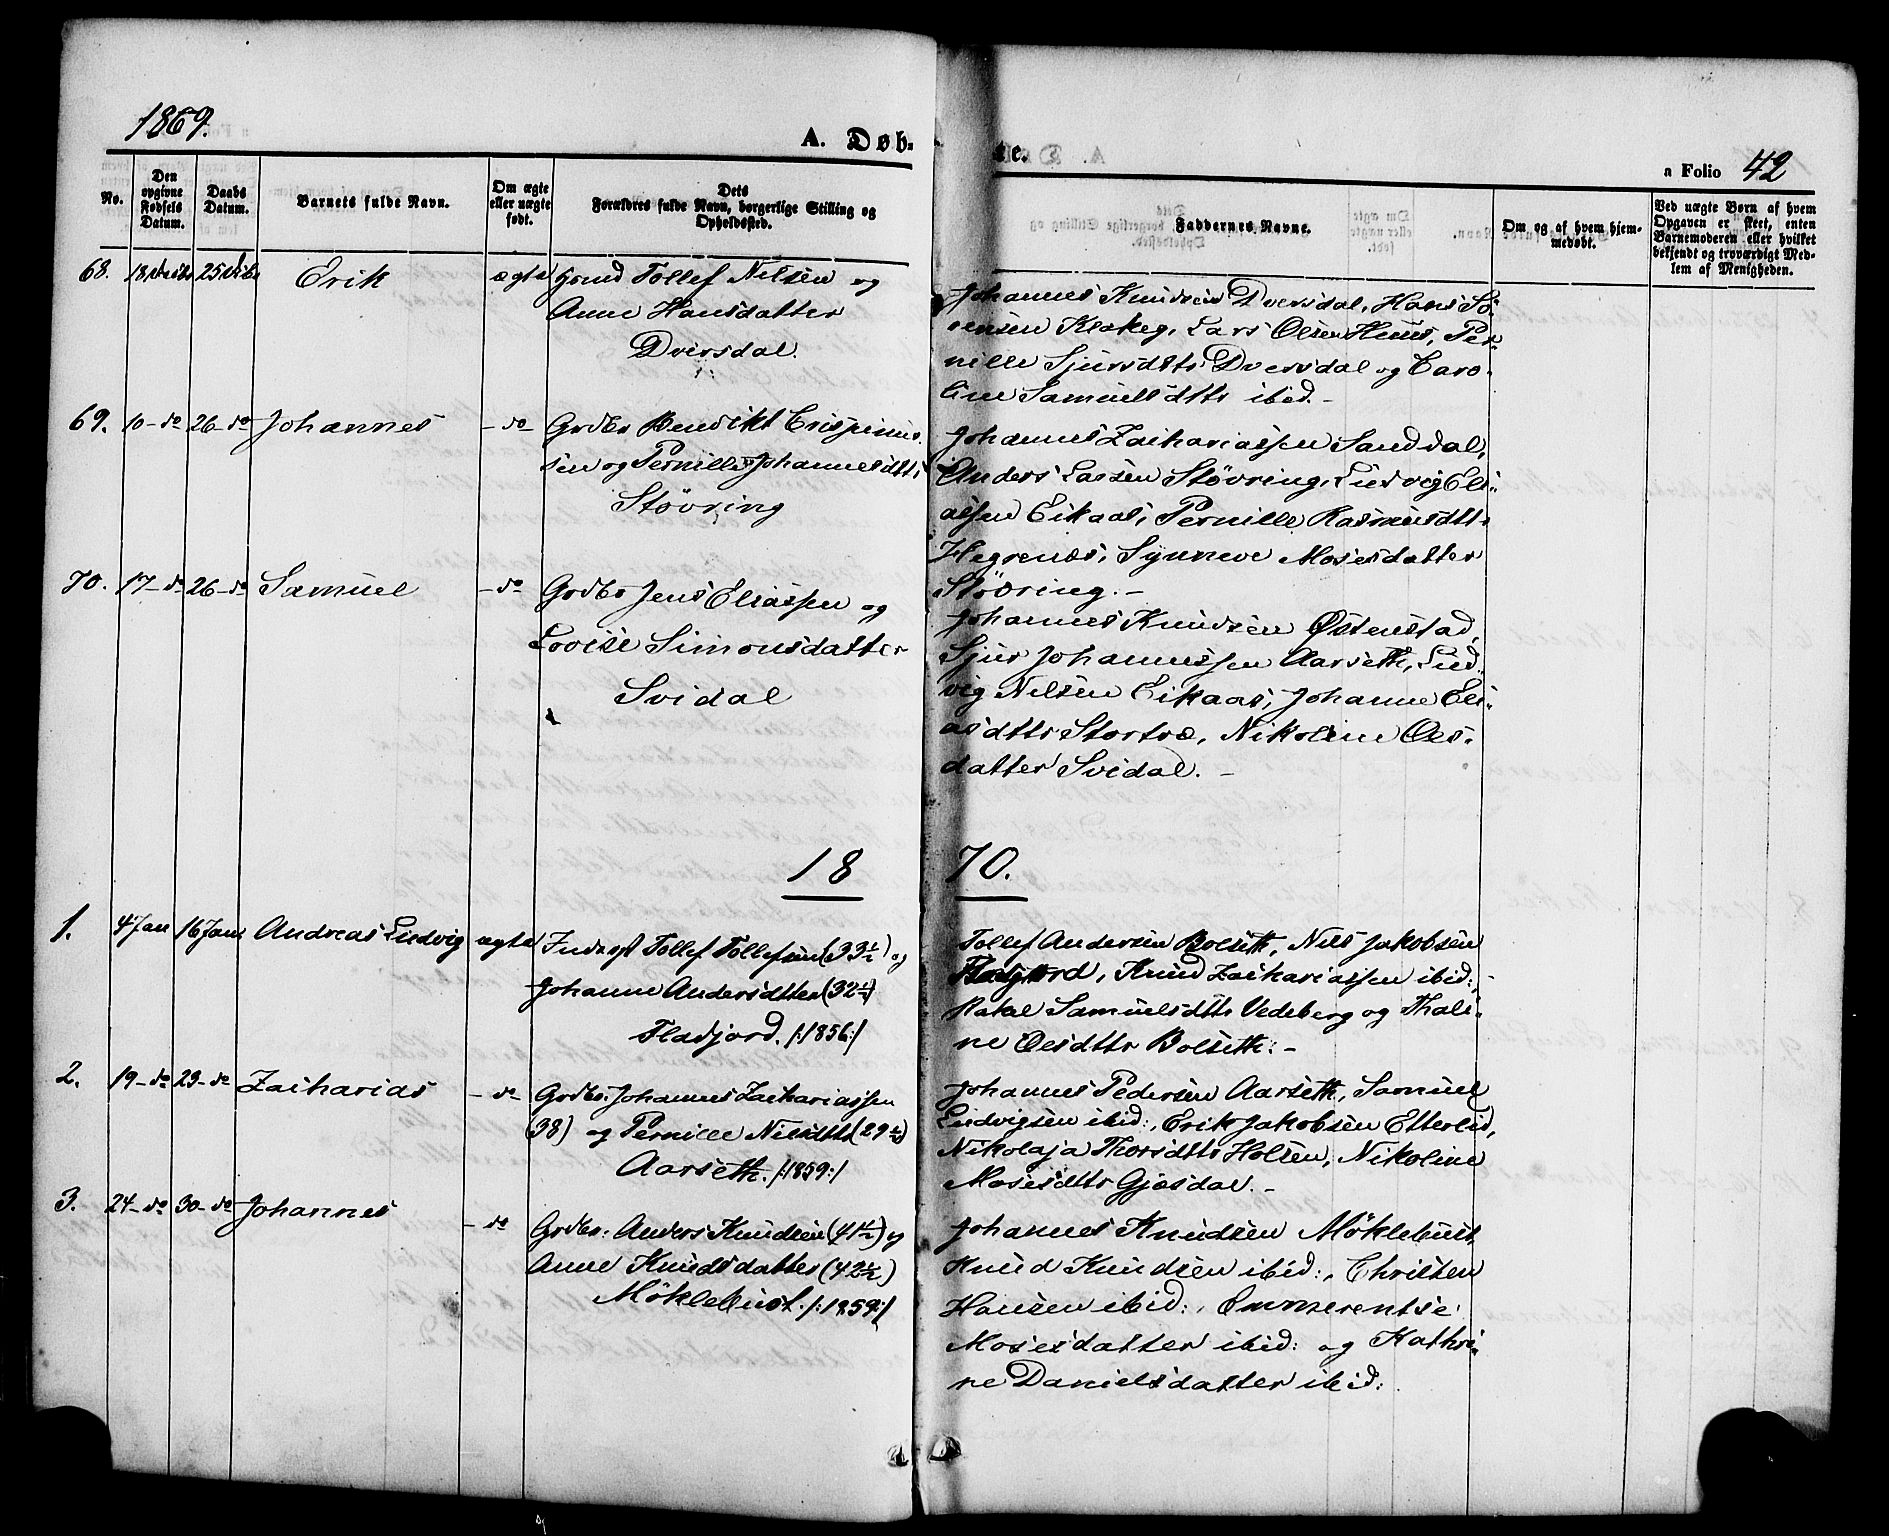 1869.
A. Døb-
te.
a Folio 42
No.
Den opgivne Fødsels Datum.
Daabs Datum.
Barnets fulde Navn.
Om ægte eller uægte født.
Dets Forældres fulde Navn, borgerlige Stilling og Opholdssted.
Faddernes Navne.
Om og af hvem hjemmedøbt.
Ved uægte Børn af hvem Opgaven er skeet, enten Barnemoderen eller hvilket bekjendt og troværdigt Medlem af Menigheden.
68. 18 25 Erik ægte Tollef Nilsen og
Anne Hansdatter
Dvirsdal.
Johannes Knudsen Dversdal, Hans Sø-
rensen Klakeg, Lars Olsen Huus, Per-
nille Sjursdttr Dversdal og Caro-
line Samuelsdttr ibid.-
69. 10-do 26-do Johannes -do Grdbr Bendikt Crispinus-
sen og Pernille Johannesdttr
Støvring
Johannes Zachariassen Sanddal,
Anders Larsen Støvring, Ludvig Eli-
assen Eikaas, Pernille Rasmusdttr
Hegrenæs, Synneve Mosesdatter
Støvring.-
70. 17-do 26-do Samuel -do Grdbr Jens Eliassen og
Lovise Simonsdatter
Svidal
Johannes Knudsen Østenstad,
Sjur Johannessen Aarseth, Lud-
vig Nilsen Eikaas, Johanne Eli-
asdttr Stortræ, Nikoline Ols-
datter Svidal.-
18 70.
1. 4 Jan 16 Jan Andreas Ludvig ægte Inderst Tollef Tollefsen (33½) og
Johanne Andersdtter (32½)
Fladjord. /:1856:/
Tollef Andersen Bolseth, Nils Jakobsen
Fladjord, Knud Zachariassen ibid:,
Rakel Samuelsdttr Vedeberg og Thali-
ne Olsdttr Bolseth:-
2. 19-do 23-do Zacharias -do Grdbr. Johannes Zachariassen
(38) og Pernille Nilsdttr (29½)
Aarseth. /:1859:/
Johannes Pedersen Aarseth, Samuel
Ludvigsen ibid:, Erik Jakobsen Etterlid,
Nikolaja Thorsdttr Holsen, Nikoline
Mosesdttr Gjøsdal.-
3. 24-do 30-do Johannes -do Grdbr: Anders Knudsen (41½) og
Anne Knudsdatter (42½)
Möklebust. /:1859:/
Johannes Knudsen Möklebust,
Knud Knudsen ibid:, Christen
Hansen ibid:, Emmerentse
Mosesdatter ibid: og Kathri-
ne Danielsdatter ibid: